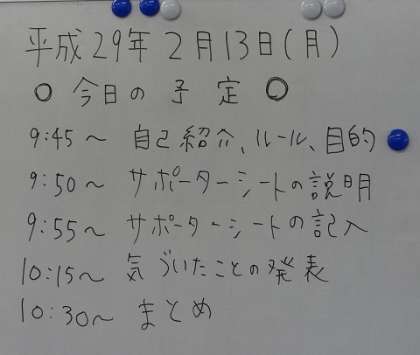 平成29年2月13日(月)
○ 今日の予定 ○
9:45〜 自己紹介、ルール、目的
9:50〜 サポーターシートの説明
9:55〜 サポーターシートの記入
10:15〜 気づいたことの発表
10:30〜 まとめ